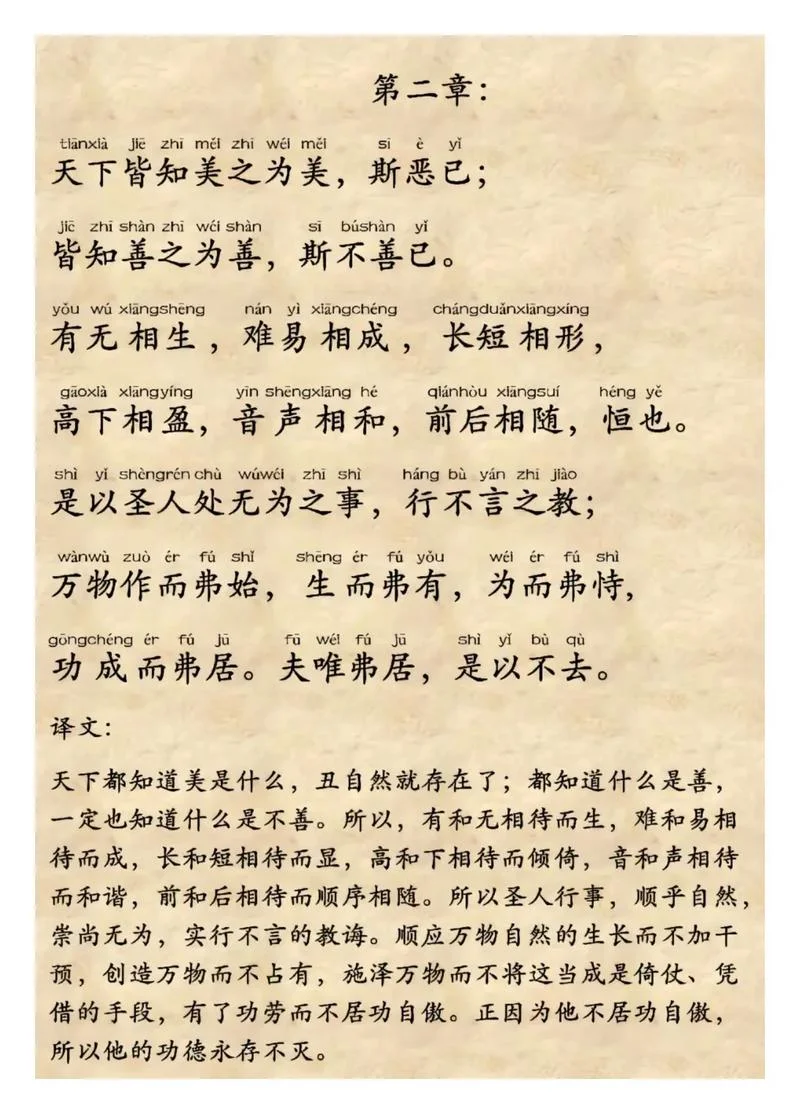 第二章：
tiānxià jiē zhī měi zhī wéi měi sī è yǐ
天下皆知美之为美，斯恶已；
jiē zhī shàn zhī wéi shàn sī búshàn yǐ
皆知善之为善，斯不善已。
yǒu wú xiāngshēng nán yì xiāngchéng chángduǎnxiāngxíng
有无相生，难易相成，长短相形，
gāoxià xiāngyíng yīn shēngxiāng hé qiánhòu xiāngsuí héng yě
高下相盈，音声相和，前后相随，恒也。
shì yǐ shèngrén chù wúwéi zhī shì háng bù yán zhī jiào
是以圣人处无为之事，行不言之教；
wànwù zuò ér fú shǐ shēng ér fú yǒu wéi ér fú shì
万物作而弗始，生而弗有，为而弗恃，
gōngchéng ér fú jū fū wéi fú jū shì yǐ bù qù
功成而弗居。夫唯弗居，是以不去。
译文：
天下都知道美是什么，丑自然就存在了；都知道什么是善，
一定也知道什么是不善。所以，有和无相待而生，难和易相
待而成，长和短相待而显，高和下相待而倾倚，音和声相待
而和谐，前和后相待而顺序相随。所以圣人行事，顺乎自然，
崇尚无为，实行不言的教诲。顺应万物自然的生长而不加干
预，创造万物而不占有，施泽万物而不将这当成是倚仗、凭
借的手段，有了功劳而不居功自傲。正因为他不居功自傲，
所以他的功德永存不灭。